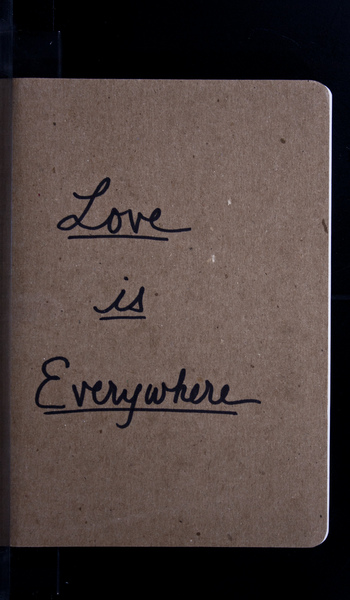 Love
is
Everywhere